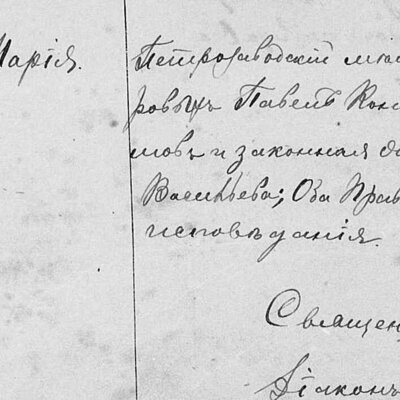 Марія.
Петрозаводскій
Павелъ Кон
мовъ и законная
Васильева; Оба Прав
исповѣданія.
Священ
Діаконъ